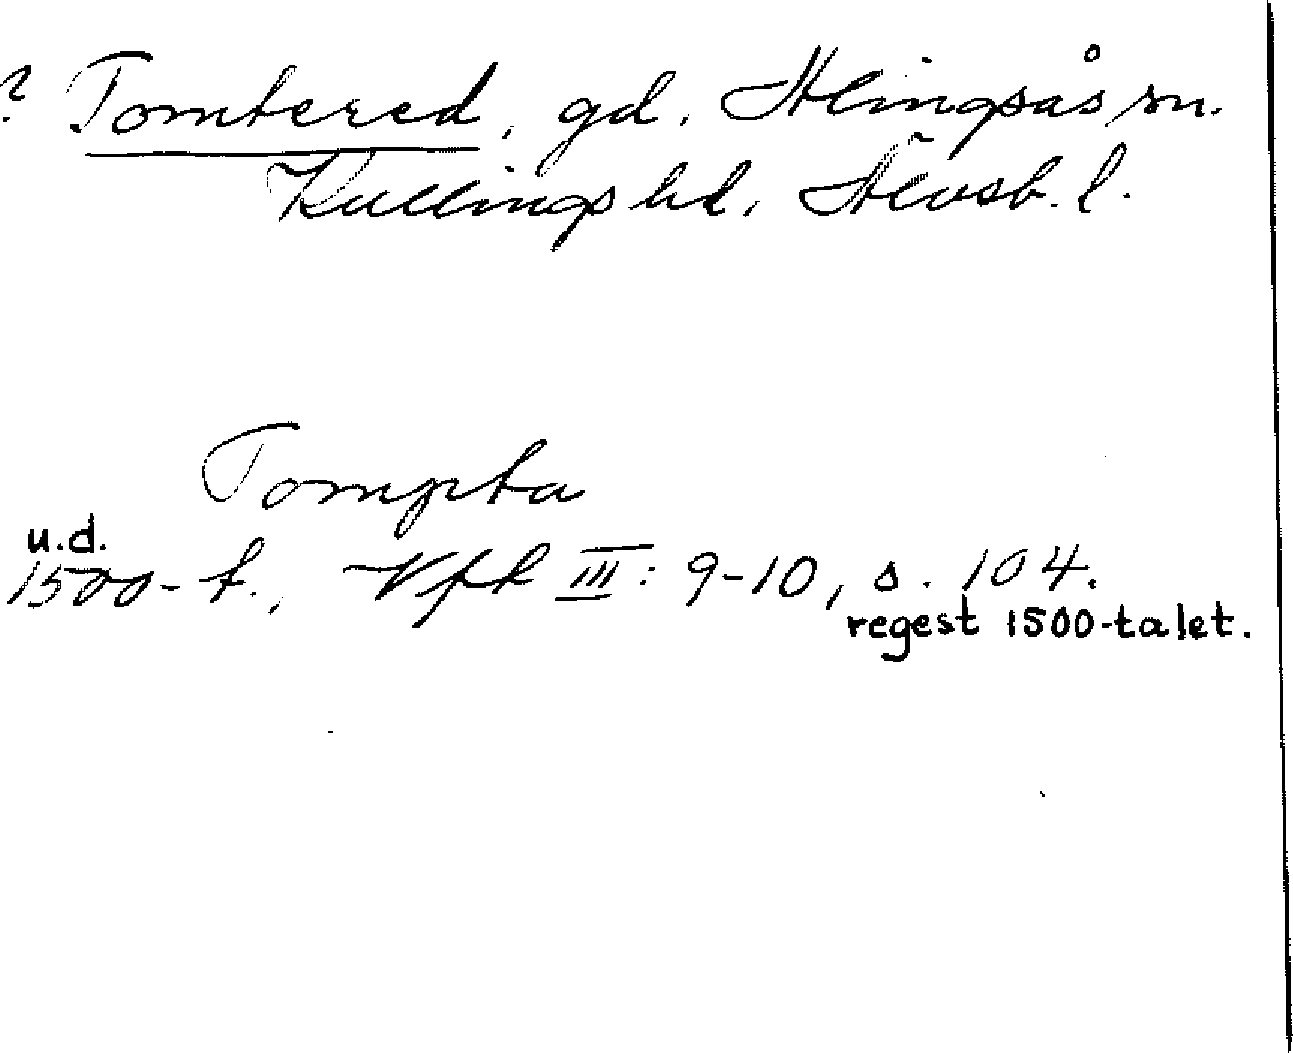 ? Tomtered, gd, Alingsås sn.
Kullings hd, Älvsb. l.
Tompta
u.d.
1500-t., Vfk III: 9-10, s. 104.
regest 1500-talet.